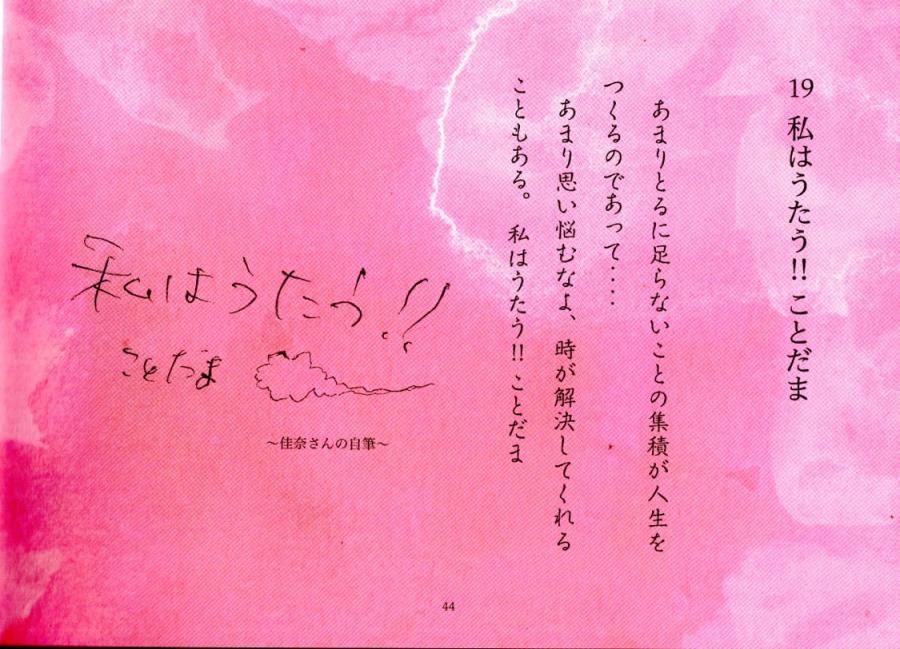 19 私はうたう!! ことだま
あまりとるに足らないことの集積が人生を
つくるのであって‥‥
あまり思い悩むなよ、時が解決してくれる
こともある。 私はうたう!! ことだま
私はうたう!!
ことだま
〜佳奈さんの自筆〜
44